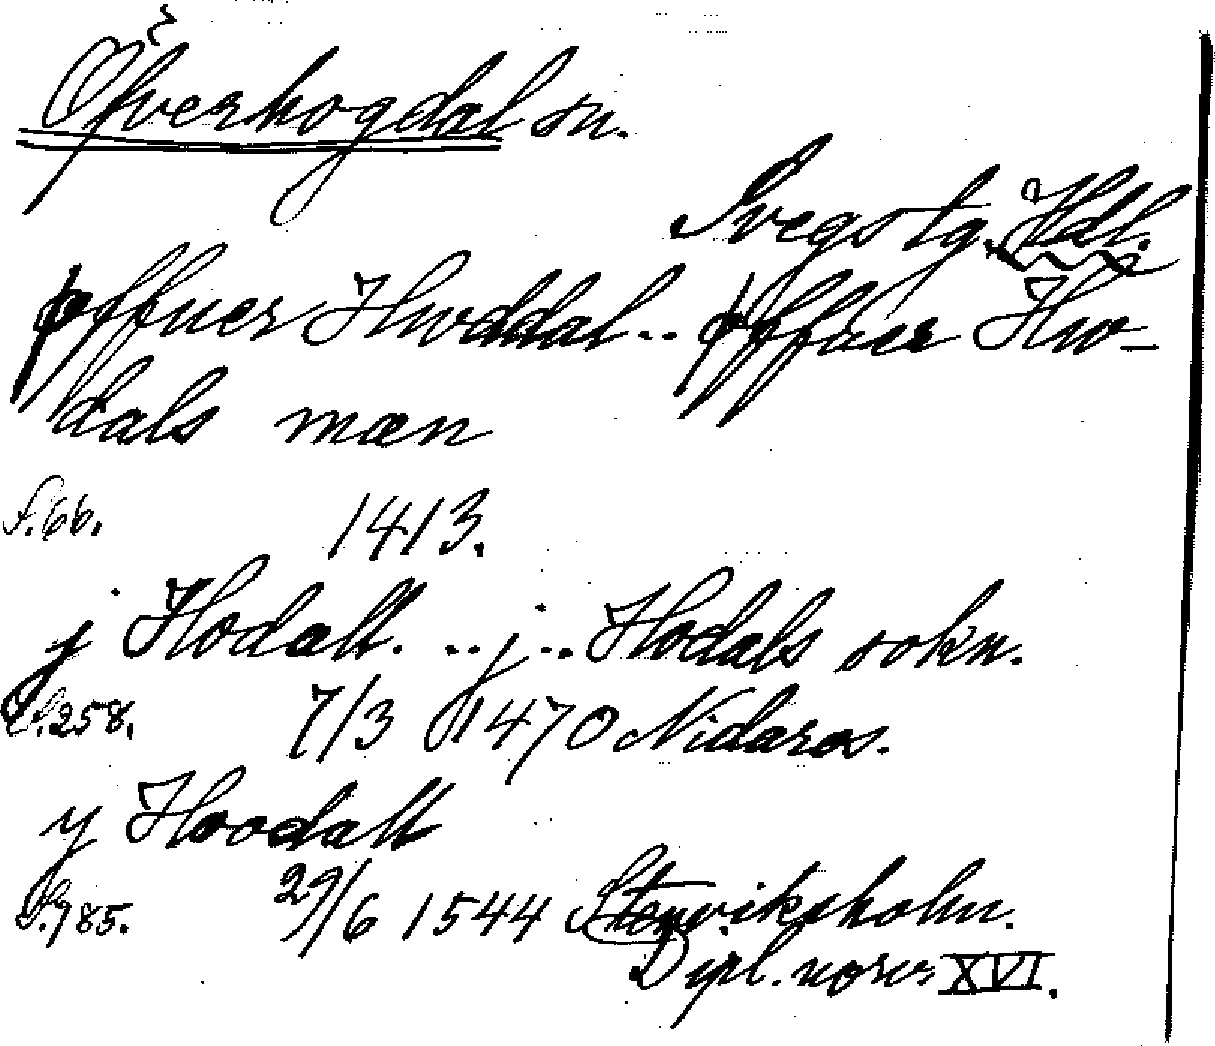 Öfverhogdal sn.
Svegs tg. Hdl.
pöffuer Hwddal .. pöffuer Hw-
dals mæn
S. 66. 1413.
j Hodall. .. j .. Hodals sokn.
S. 258. 7/3 1470 Nidaros.
y Hoodall
S. 785. 29/6 1544 Stenviksholm.
Dipl. norv. XVI.